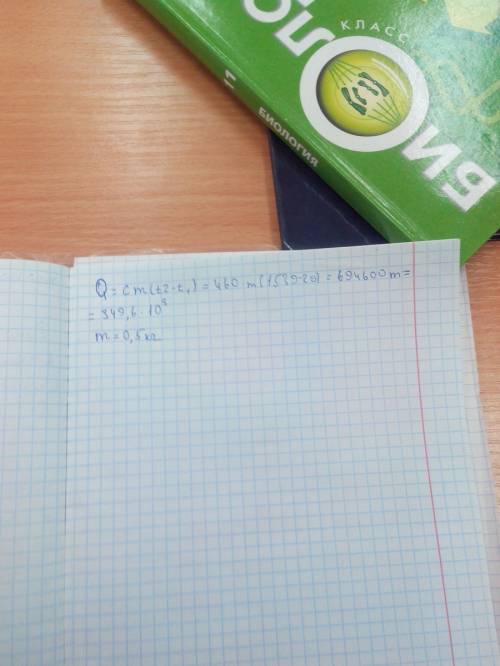 КЛАСС
БИОЛО
11
БИОЛОГИЯ
Q = cm(t2-t1) = 460 m(1539-20) = 694600m =
= 349,6 · 10³
m = 0,5 кг